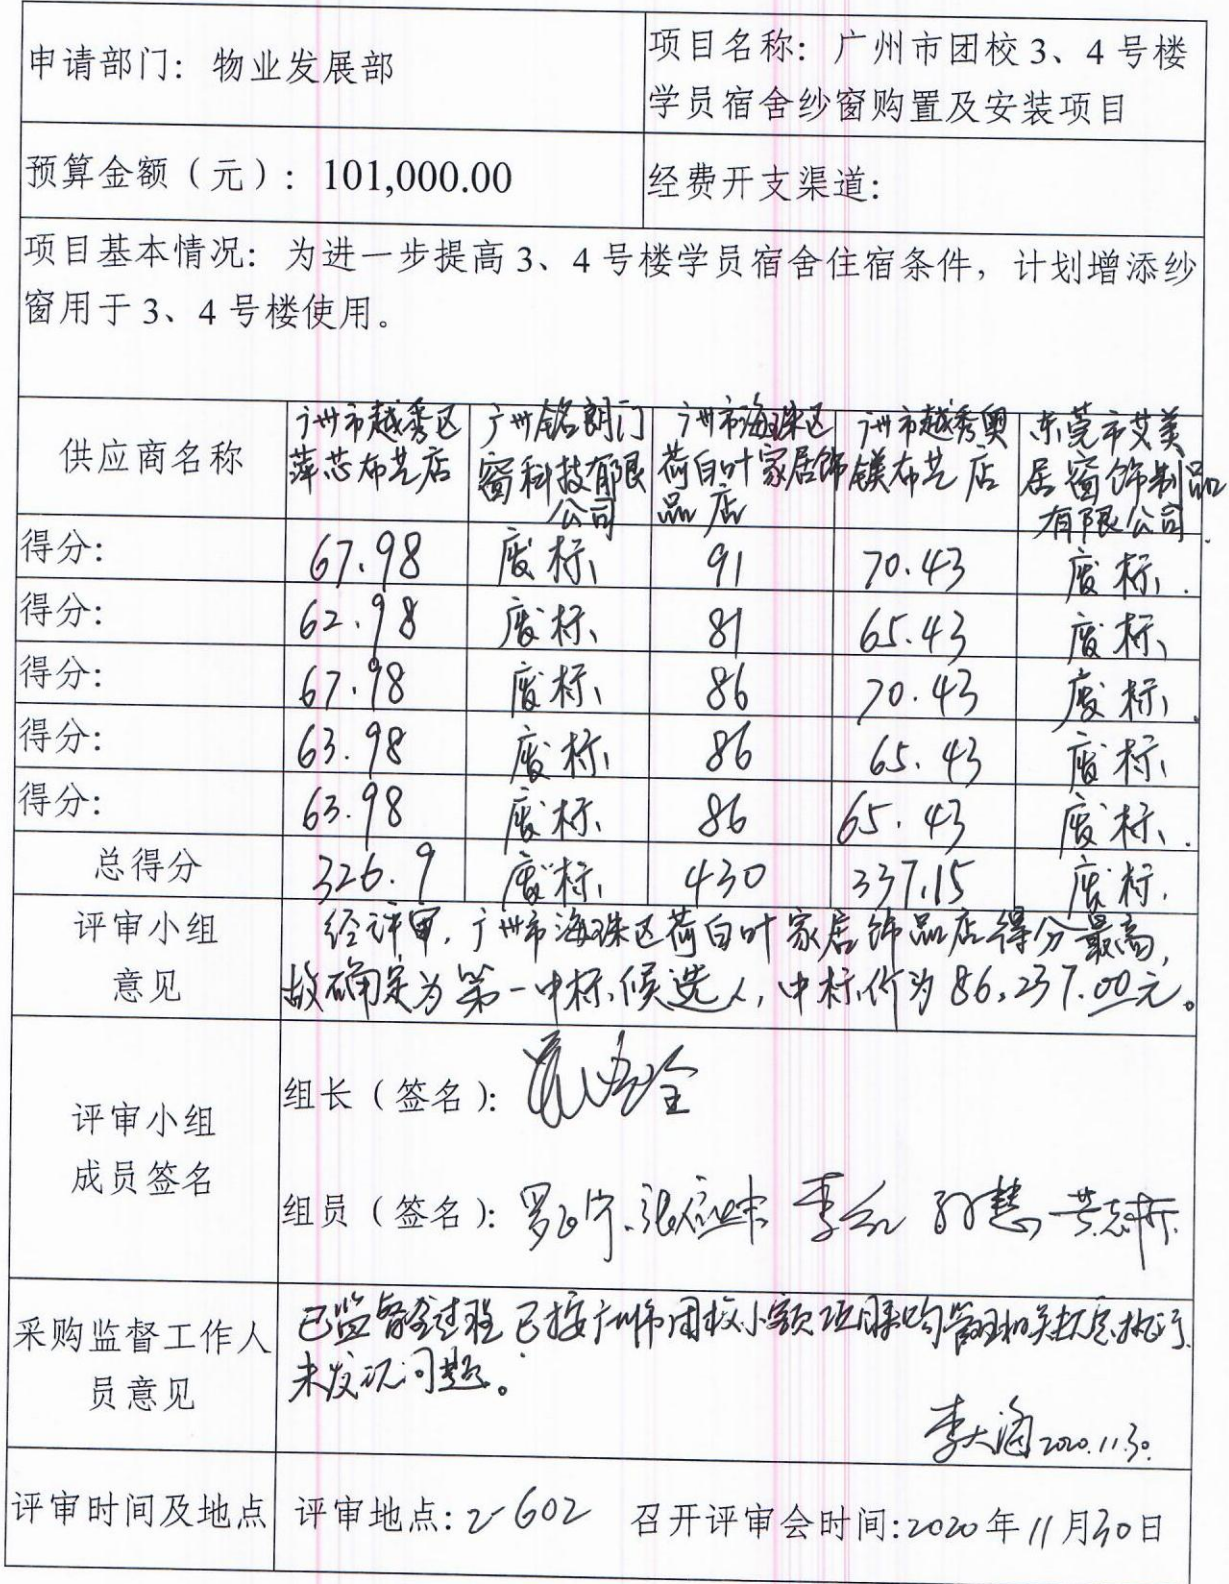 申请部门：物业发展部
项目名称：广州市团校3、4号楼
学员宿舍纱窗购置及安装项目
预算金额（元）：101,000.00
经费开支渠道：
项目基本情况：为进一步提高3、4号楼学员宿舍住宿条件，计划增添纱
窗用于3、4号楼使用。
供应商名称
广州市越秀区
萍芯布艺店
广州铭朗门
窗科技有限
公司
广州市海珠区
荷白叶家居饰
品店
广州市越秀奥
镁布艺店
东莞市艾美
居窗饰制品
有限公司
得分： 67.98 废标 91 70.43 废标
得分： 62.98 废标 81 65.43 废标
得分： 67.98 废标 86 70.43 废标
得分： 63.98 废标 86 65.43 废标
得分： 63.98 废标 86 65.43 废标
总得分 326.9 废标 430 337.15 废标
评审小组
意见
经评审，广州市海珠区荷白叶家居饰品店得分最高，
故确定为第一中标候选人，中标价为86,237.00元。
评审小组
成员签名
组长（签名）：
组员（签名）： 李 慧
采购监督工作人
员意见
已监督全过程 已按广州市团校小额项目采购管理相关规定执行，
未发现问题。
李大海 2020.11.30.
评审时间及地点
评审地点：2-602 召开评审会时间：2020年11月30日